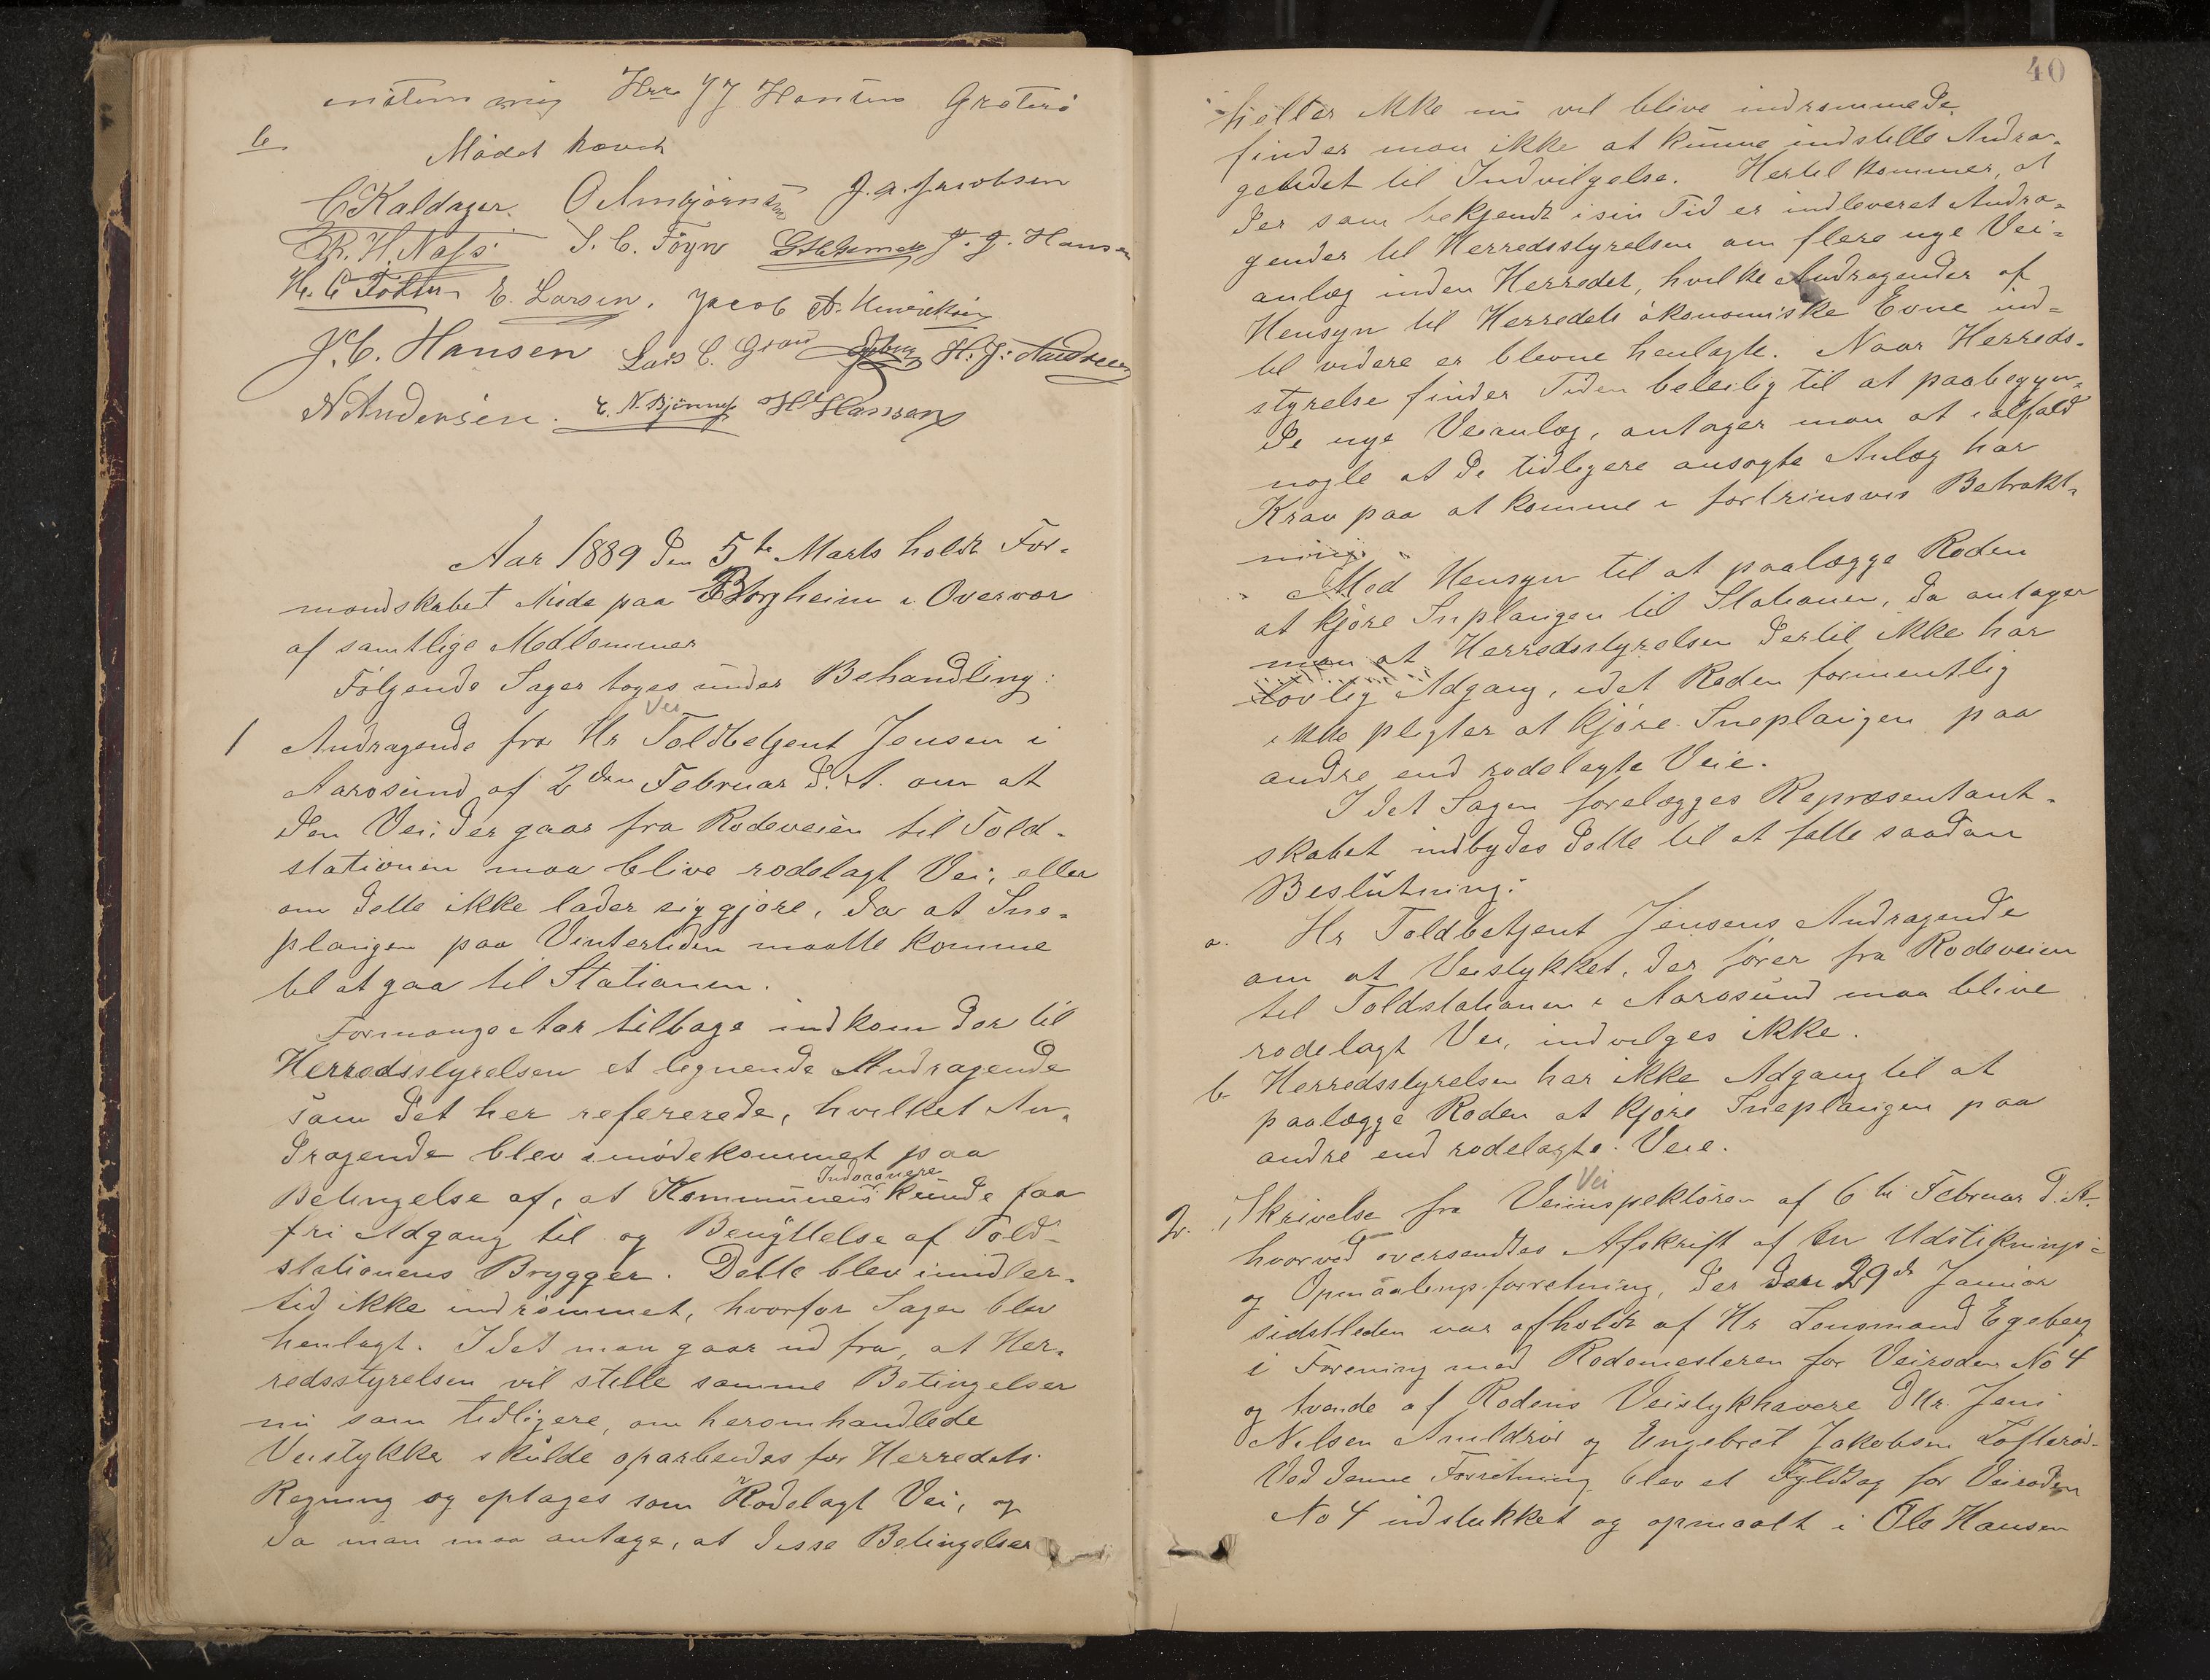 enstemmig Hrr J J Hansen Grøterø
6. Mødet hævet
C Kaldager. O Ambjørnsen J. A. Jacobsen
R. H. Nass S. C. Föyn J. J. Hansen
H. C. E. Larsen. Jacob A. Henriksen
J. C. Hansen Lars C. H. J. Andresen
N Andersen. E. N. Bjønnes H Hanssen
Aar 1889 den 5te Marts holdt For-
mandskabet Møde paa Borgheim i Overvær
af samtlige Medlemmer
Følgende Sager toges under Behandling:
Vei
1 Andragende fra Hr Toldbetjent Jensen i
Aarøsund af 2den Februar d. A. om at
den Vei, der gaar fra Rodeveien til Told-
stationen maa blive rodelagt Vei, eller
om dette ikke lader sig gjøre, da at Sne-
plougen paa Vintertiden maatte komme
til at gaa til Stationen.
For mange Aar tilbage indkom der til
Herredsstyrelsen et lignende Andragende
som det her refererede, hvilket An-
dragende blev imødekommet paa
Indvaanere
Betingelse af, at Kommunens kunde faa
fri Adgang til og Benyttelse af Told-
stationens Brygger. Dette blev imidler-
tid ikke indrømmet, hvorfor Sagen blev
henlagt. Idet man gaar ud fra, at Her-
redsstyrelsen vil stille samme Betingelser
nu som tidligere, om heromhandlede
Veistykke skulde oparbeides for Herredets
Regning og optages som Rodelagt Vei, og
da man maa antage, at disse Betingelser
40
heller ikke nu vil blive indrømmede,
finder man ikke at kunne indstille Andra-
gendet til Indvilgelse. Hertil kommer, at
der som bekjendt i sin Tid er indleveret Andra-
gender til Herredsstyrelsen om flere nye Vei-
anlæg inden Herredet, hvilke Andragender af
Hensyn til Herredets økonomiske Evne ind-
til videre er blevne henlagte. Naar Herreds-
styrelse finder Tiden beleilig til at paabegyn-
de nye Veianlæg, antager man at ialfald
nogle af de tidligere ansøgte Anlæg har
Krav paa at komme i fortrinsvis Betrakt-
ning.
Med Hensyn til at paalægge Roden
at kjøre Sneplougen til Stationen, da antager
man at Herredsstyrelsen dertil ikke har
Lovlig Adgang, idet Roden formentlig
ikke pligter at kjøre Sneplougen paa
andre end rodelagte Veie.
Idet Sagen forelægges Repræsentant-
skabet indbydes dette til at fatte saadan
Beslutning:
a. Hr Toldbetjent Jensens Andragende
om at Veistykket, der fører fra Rodeveien
til Toldstationen i Aarøsund maa blive
rodelagt Vei, indvilges ikke.
b Herredsstyrelsen har ikke Adgang til at
paalægge Roden at kjøre Sneplougen paa
andre end rodelagte Veie.
Vei
2. Skrivelse fra Veiinspektøren af 6te Februar d. A.
hvorved oversendtes Afskrift af en Udstiknings-
og Opmaalingsforretning, der den 29de Januar
sidstleden var afholdt af Hr Lensmand Egeberg
i Forening med Rodemesteren for Veiroden No 4
og tvende af Rodens Veistykhavere dHr. Jens
Nilsen Amldrød og Engebret Jakobsen Lofterød.
Ved denne Forretning blev et Fyldtag for Veiroden
No 4 udstukket og opmaalt i Ole Hansen